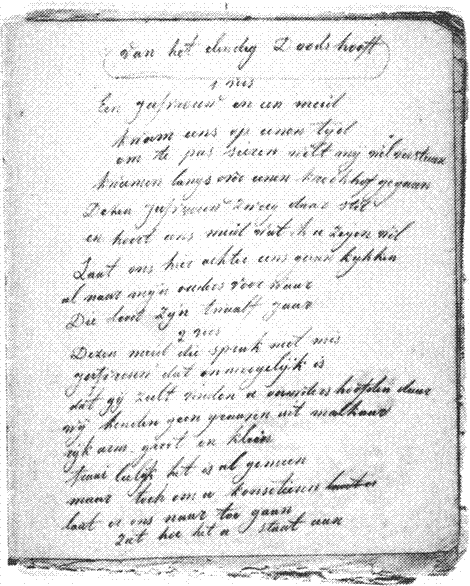 van het elendig Doodshooft
1 vers
Een juffrouw en een meid
kwam eens op eenen tijd
om te pas wilt mij wel verstaan
kwamen langs over eenen kerkhof gegaan
Dezen juffrouw zweeg daar stil
en hoort eens meid wat ik u zegen wil
Laat ons hier achter eens gaan kykken
al naar myn ouders voorwaar
Die doot zyn twaalf jaar
2 vers
Dezen meid die sprak met mis
juffrouw dat onmogelyk is
dat gy zult vinden u ouwders hoofden daar
wy kenden geen graaven uit malkaar
ryk arm groot en klein
fraai leelyk het is al gemeen
maar toch om u konsetienen
laat er ons naar toe gaan
zat hoe het u staat aan